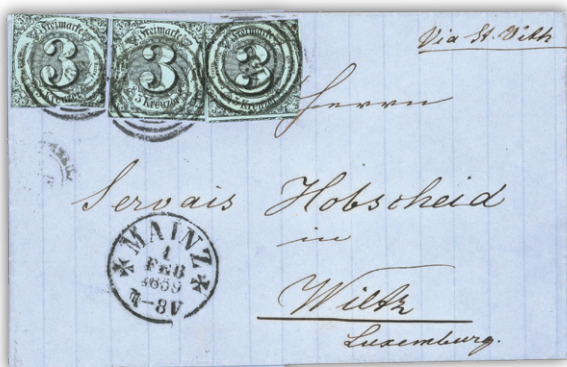 Freimarke Freimarke Freimarke
3 3 3
3 Kreuzer 3 Kreuzer Kreuzer
Via St. Vith
Herrn
Servais Hobscheid
in
Wiltz
Luxemburg.
MAINZ
1
FEB
1859
7–8V